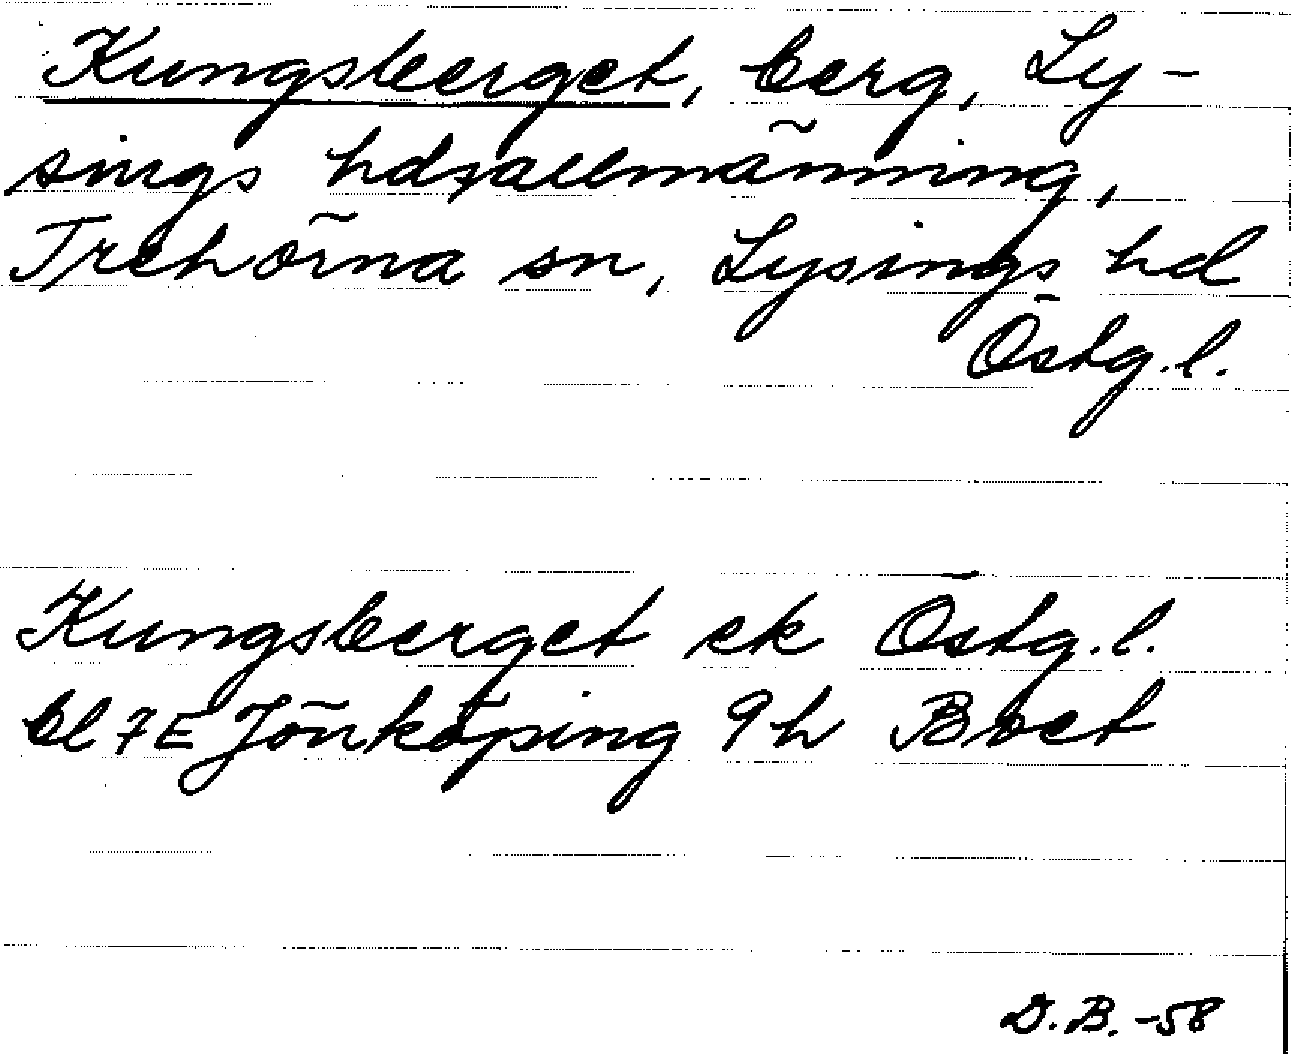 Kungsberget, berg, Ly-
sings hdsallmänning,
Trehörna sn, Lysings hd
Östg.l.
Kungsberget ek Östg.l.
bl 7E Jönköping 9h Boet
D.B. -58